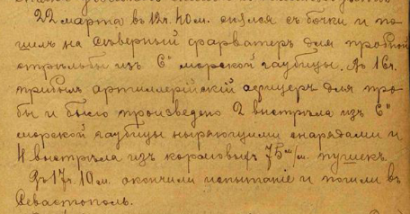 22 марта въ 12ч. 40м. снялся съ бочки и по-
шелъ на Сѣверный фарватеръ для пробной
стрѣльбы изъ 6" морской гаубицы. Въ 16ч.
прибылъ артиллерійскій офицеръ для про-
бы и было произведено 2 выстрѣла изъ 6"
морской гаубицы ныряющими снарядами и
4 выстрѣла изъ кормовыхъ 75 м/м. пушекъ.
Въ 17ч. 10м. окончили испытаніе и пошли въ
Севастополь.